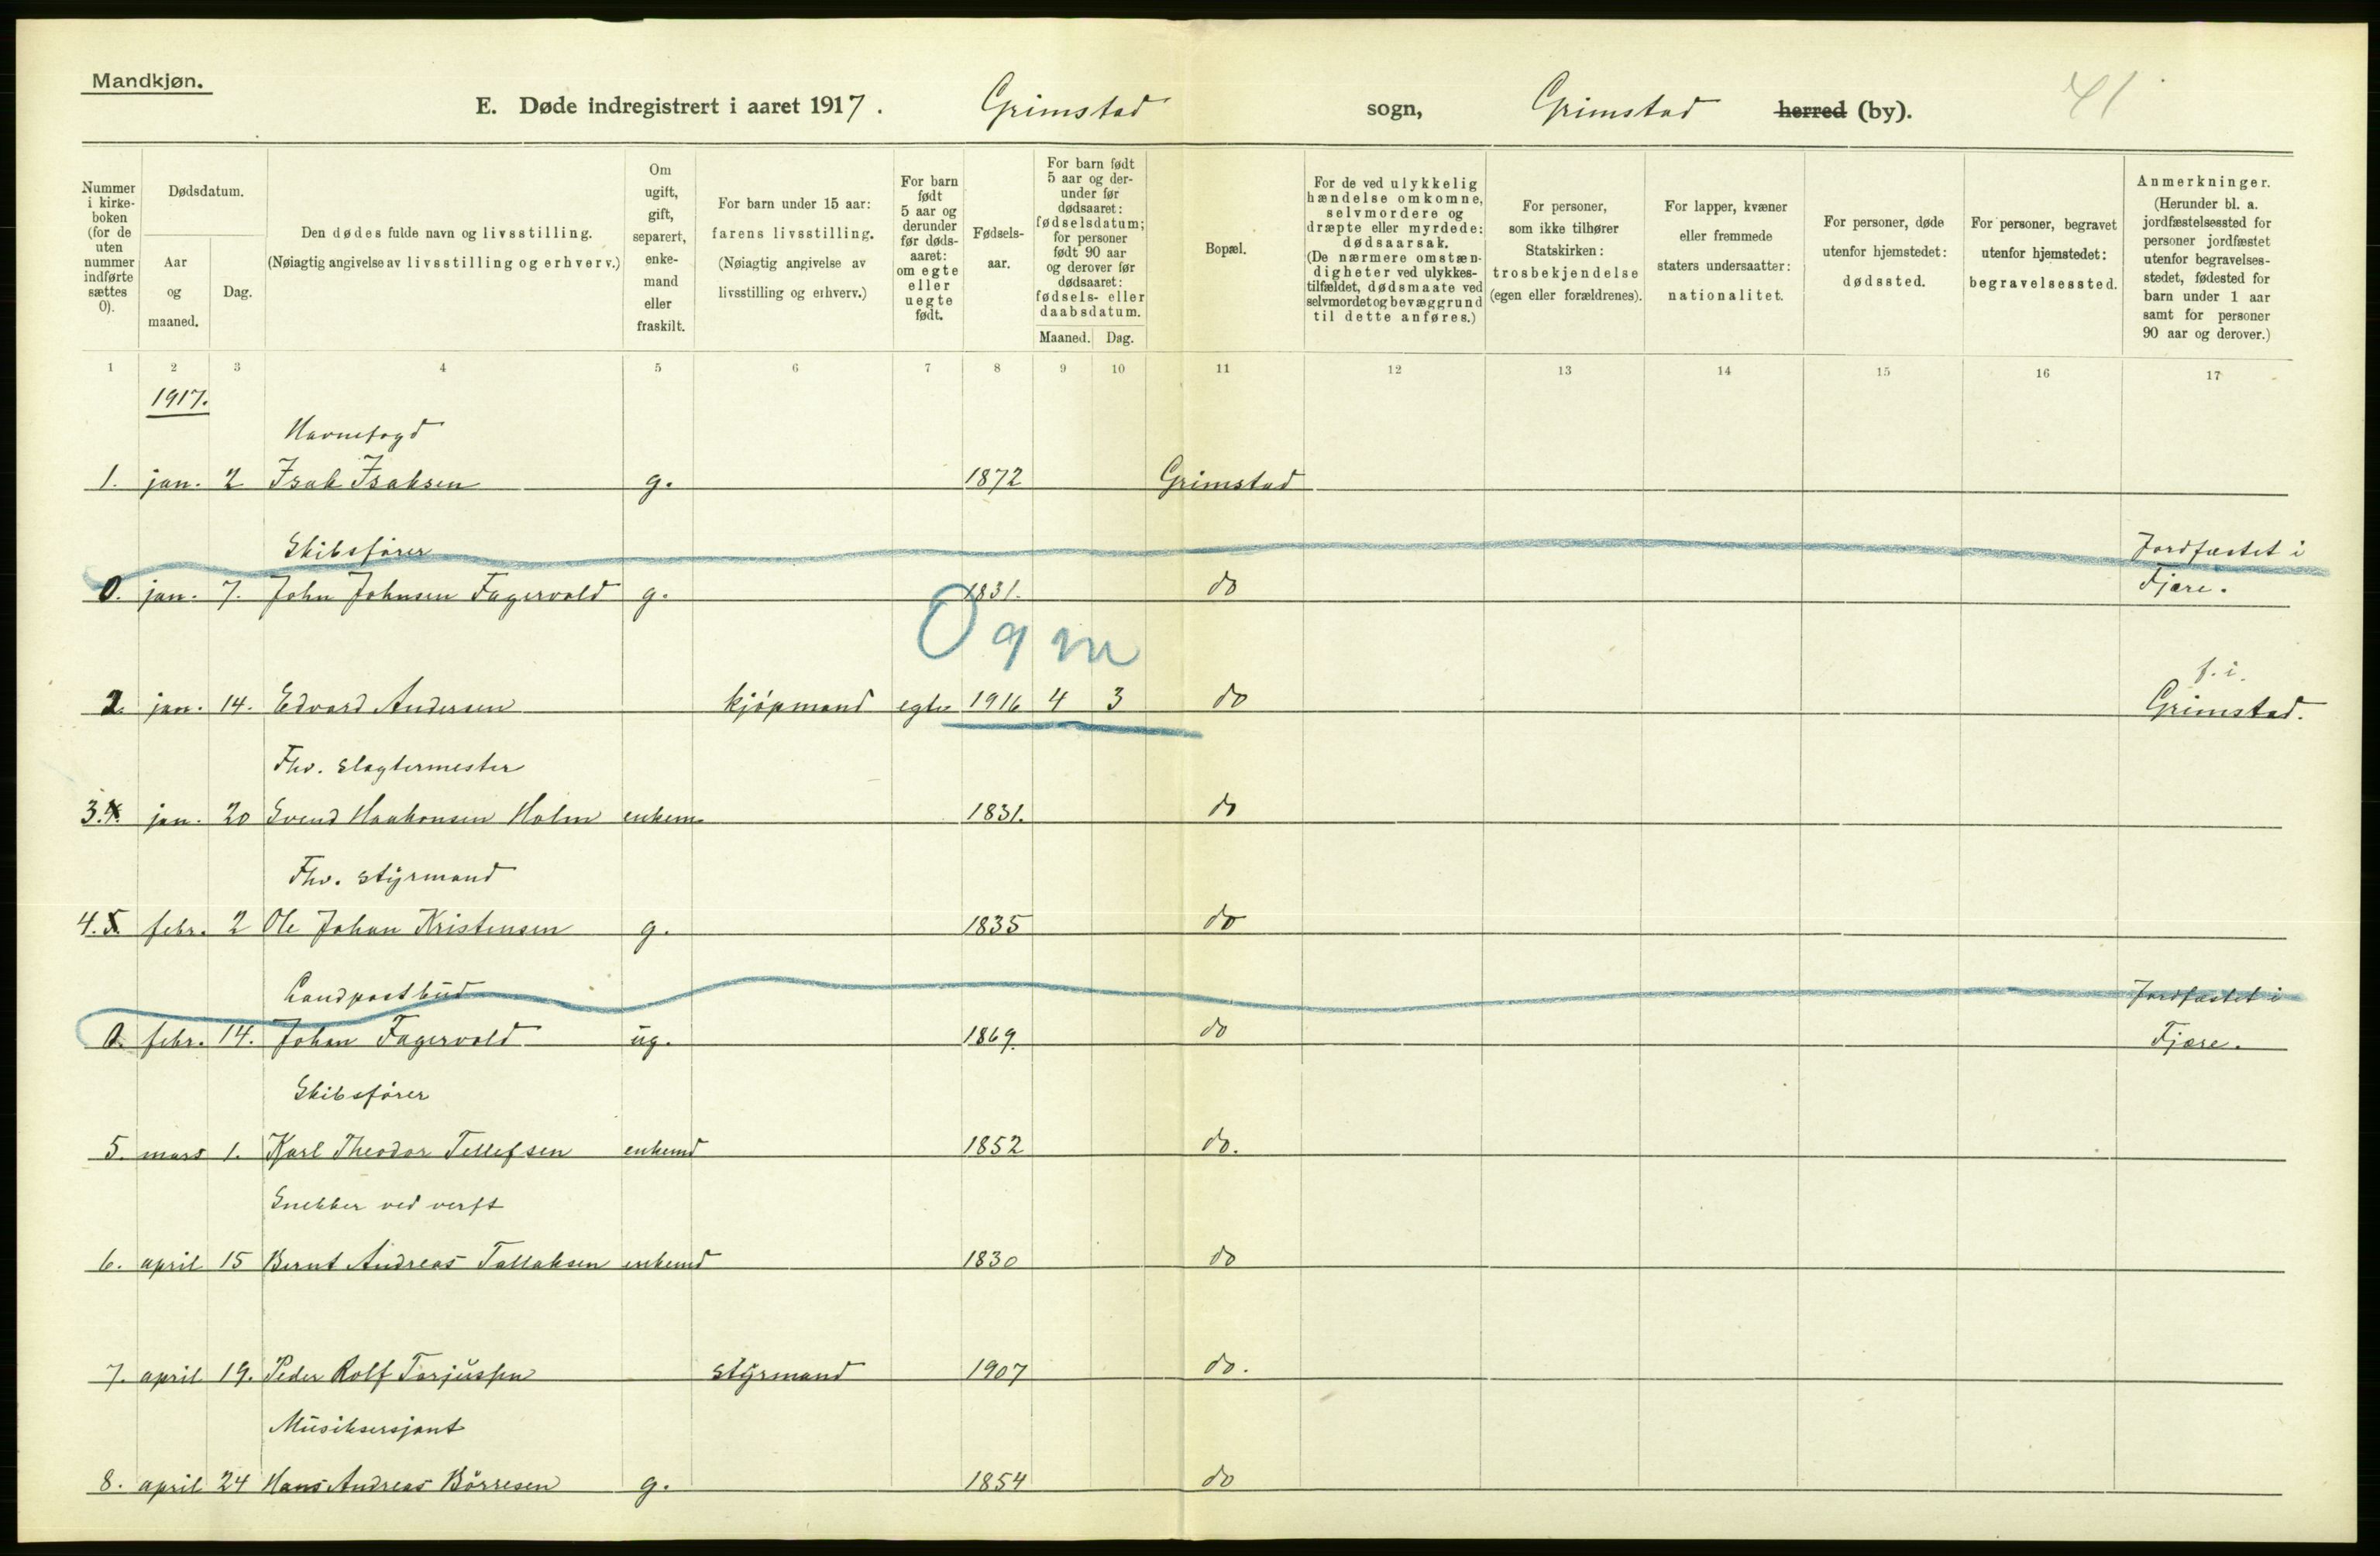 Mandkjøn.
E. Døde indregistrert i aaret 1917. Grimstad sogn, Grimstad herred (by). 41
Nummer i kirke-boken (for de uten nummer indførte sættes 0).
Dødsdatum.
Aar og maaned.
Dag.
Den dødes fulde navn og livsstilling.
(Nøiagtig angivelse av livsstilling og erhverv.)
Om ugift, gift, separert, enke-mand eller fraskilt.
For barn under 15 aar:
farens livsstilling.
(Nøiagtig angivelse av livsstilling og erhverv.)
For barn født 5 aar og derunder før døds-aaret: om egte eller uegte født.
Fødsels-aar.
For barn født 5 aar og der-under før dødsaaret: fødselsdatum; for personer født 90 aar og derover før dødsaaret: fødsels- eller daabsdatum.
Maaned. Dag.
Bopæl.
For de ved ulykkelig hændelse omkomne, selvmordere og dræpte eller myrdede: dødsaarsak.
(De nærmere omstæn-digheter ved ulykkes-tilfældet, dødsmaate ved selvmordet og bevæggrund til dette anføres.)
For personer, som ikke tilhører Statskirken: trosbekjendelse (egen eller forældrenes).
For lapper, kvæner eller fremmede staters undersaatter: nationalitet.
For personer, døde utenfor hjemstedet: dødssted.
For personer, begravet utenfor hjemstedet: begravelsessted.
Anmerkninger.
(Herunder bl. a. jordfæstelsessted for personer jordfæstet utenfor begravelses-stedet, fødested for barn under 1 aar samt for personer 90 aar og derover.)
1 2 3 4 5 6 7 8 9 10 11 12 13 14 15 16 17
1917.
Havnefogd
1. jan. 2 Isak Isaksen g. 1872 Grimstad
Skibsfører Jordfæstet i
0. jan. 7. John Johnsen Fagervold g. 1831. do Fjære.
0 9 m
f. i.
2. jan. 14. Edvard Andersen kjøpmand egte 1916 4 3 do Grimstad.
Fhv. slagtermester
3. 4. jan. 20 Svend Haakonsen Holm enkem. 1831. do
Fhv. styrmand
4. 5. febr. 2 Ole Johan Kristensen g. 1835 do
Landpostbud Jordfæstet i
0. febr. 14. Johan Fagervold ug. 1869. do Fjære.
Skibsfører
5. mars 1. Karl Theodor Tellefsen enkemd 1852 do.
Snekker ved verft
6. april 15 Bernt Andreas Tallaksen enkemd 1830 do
7. april 19. Peder Rolf Torjussen styrmand 1907 do.
Musiksersjant
8. april 24 Hans Andreas Börresen g. 1854 do